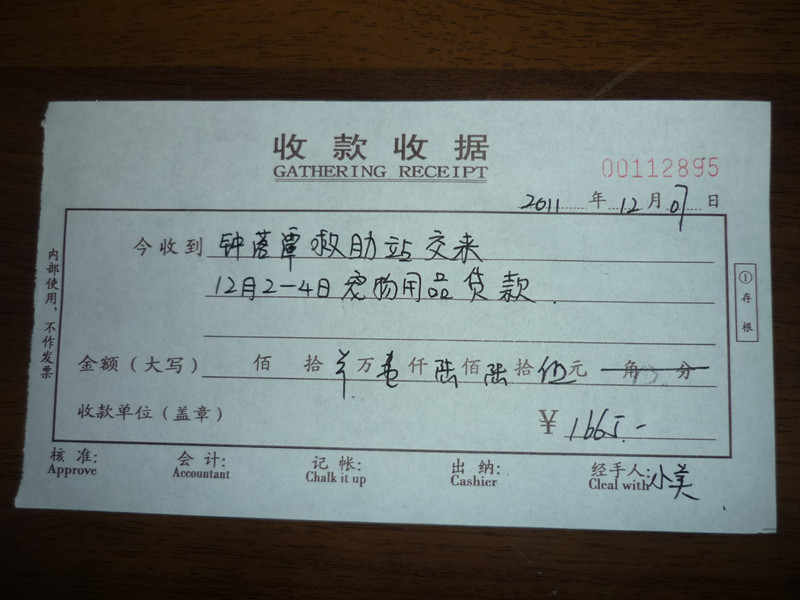 收款收据
GATHERING RECEIPT
00112895
2011 年 12 月 07 日
今收到 钟落潭救助站交来
12月2-4日宠物用品货款.
金额（大写） 佰 拾 万 壹 仟 陆 佰 陆 拾 伍 元 角 分
收款单位（盖章） ¥ 1665.-
核准: 会计: 记帐: 出纳: 经手人: 小美
Approve Accountant Chalk it up Cashier Cleal with
内部使用，不作发票
① 存根